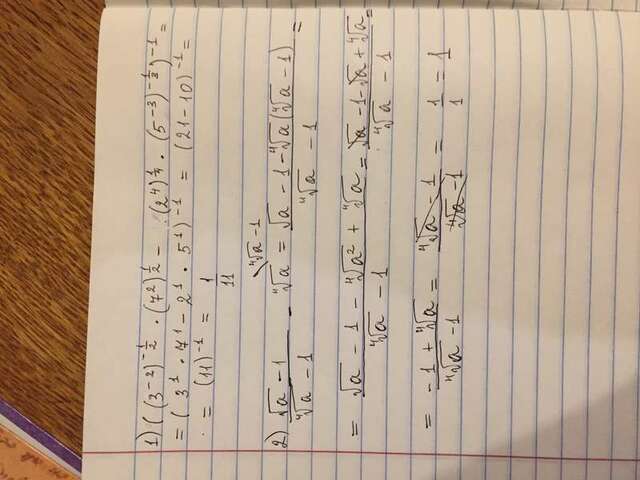 1) ((3⁻²)^(-1/2) · (7²)^(1/2) - (2⁴)^(1/4) · (5⁻³)^(-1/3))⁻¹ =
= (3¹ · 7¹ - 2¹ · 5¹)⁻¹ = (21 - 10)⁻¹ =
= (11)⁻¹ = 1/11
⁴√a - 1
2) (√a - 1)/(⁴√a - 1) - ⁴√a = (√a - 1 - ⁴√a(⁴√a - 1))/(⁴√a - 1) =
= (√a - 1 - ⁴√a² + ⁴√a)/(⁴√a - 1) = (√a - 1 - √a + ⁴√a)/(⁴√a - 1) =
= (-1 + ⁴√a)/(⁴√a - 1) = (⁴√a - 1)/(⁴√a - 1) = 1/1 = 1